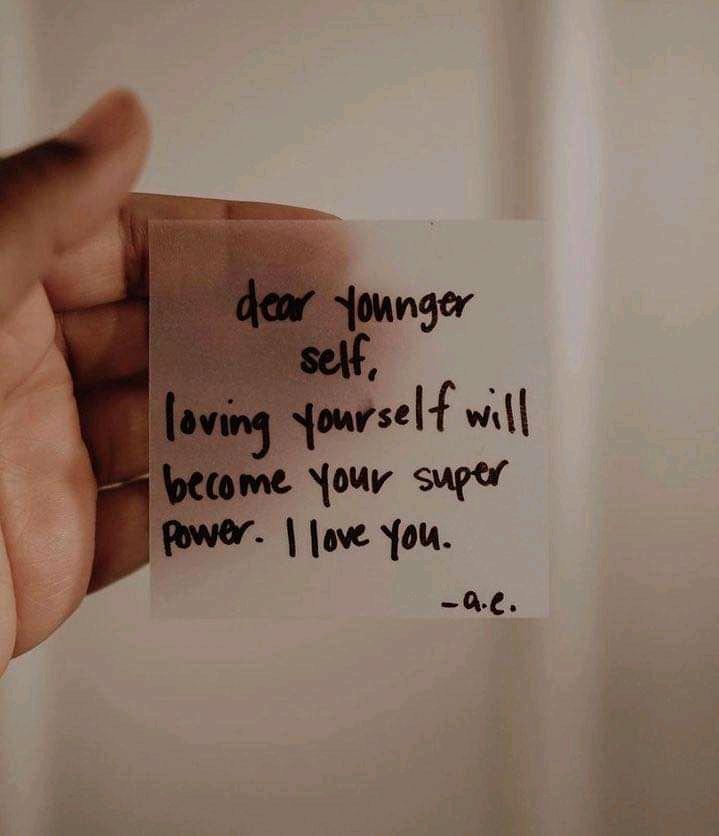 dear younger
self,
loving yourself will
become your super
power. I love you.
-a.e.